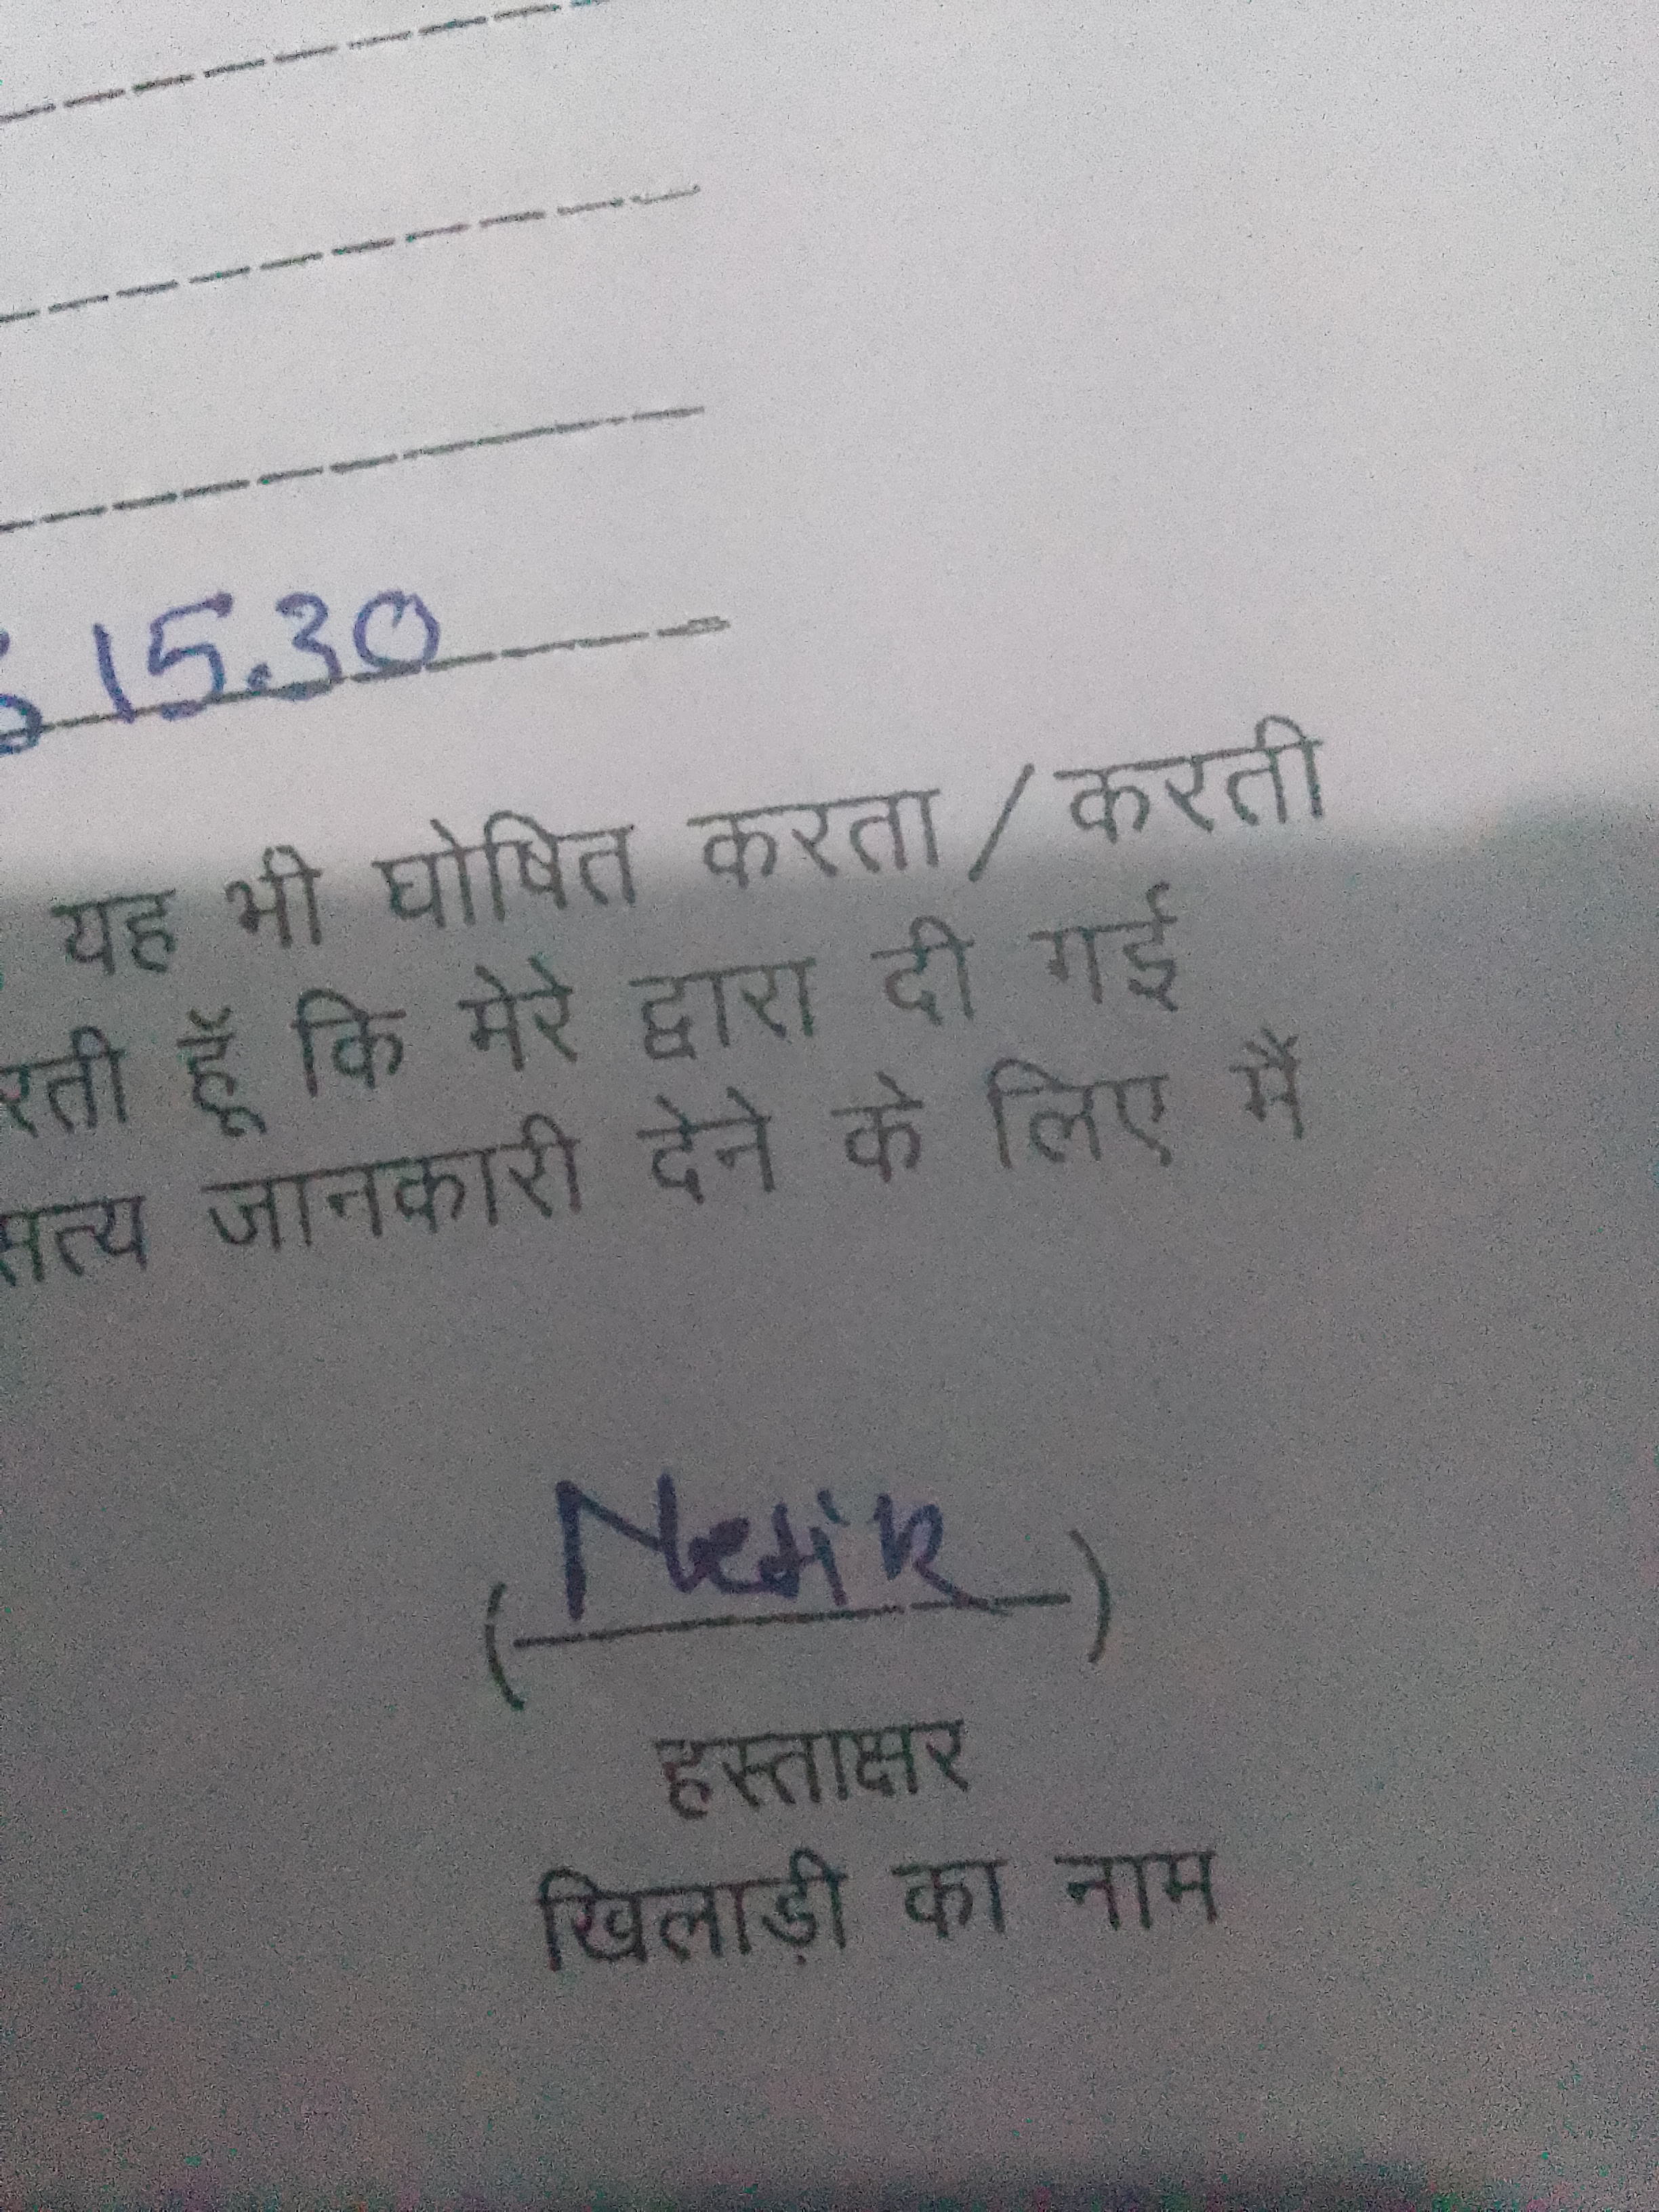 15.30
यह भी घोषित करता / करती
रती हूँ कि मेरे द्वारा दी गई
सत्य जानकारी देने के लिए मैं
हस्ताक्षर
खिलाड़ी का नाम